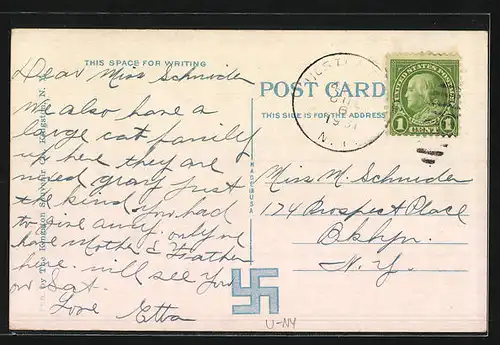 THIS SPACE FOR WRITING
Dear Miss Schnider
We also have a
large cat family
up here they are
mixed gray just
the kind you had
to give away. only we
have Mother & Father
here. will see You
on Sat.
Love Etta
Kingston, N. Y.
POST CARD
THIS SIDE IS FOR THE ADDRESS
MADE IN USA
1931
N. Y.
UNITED STATES POSTAGE
1 CENT 1
Miss M. Schnider
174 Prospect Place
Bklyn.
N. Y.
U-NY